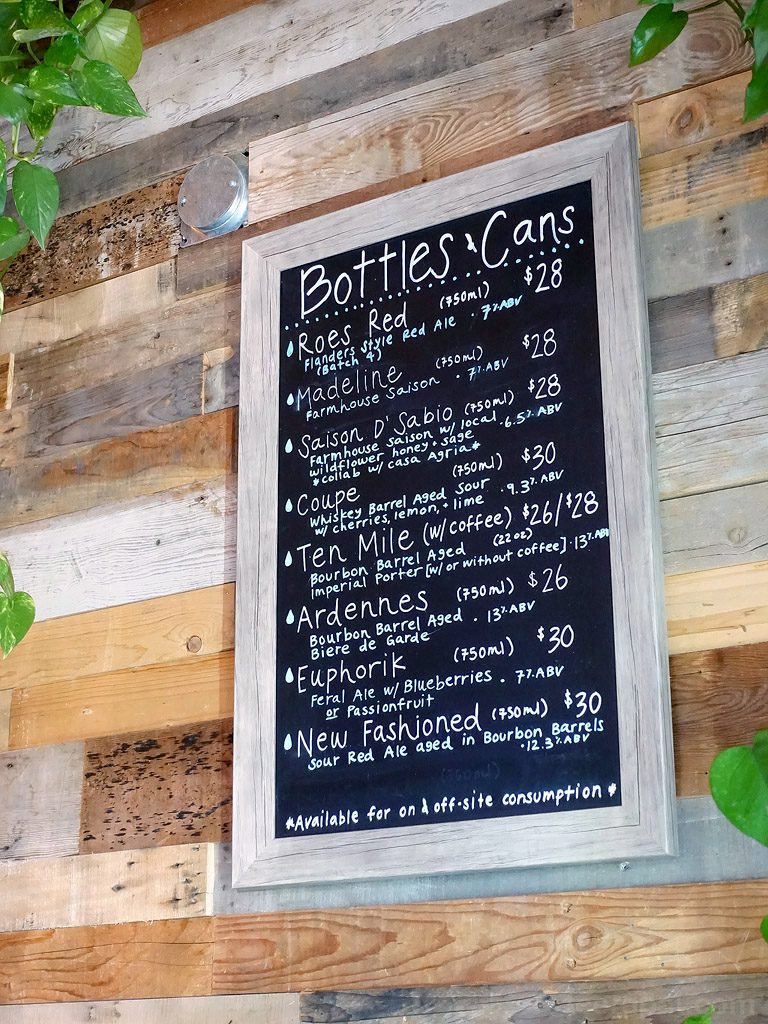 Bottles & Cans
Roes Red (750ml) $28
Flanders Style Red Ale · 7% ABV
(Batch 4)
Madeline (750ml) $28
Farmhouse Saison · 7% ABV
Saison D'Sabio (750ml) $28
Farmhouse Saison w/ local · 6.5% ABV
wildflower honey + sage
*collab w/ casa Agria*
Coupe (750ml) $30
Whiskey Barrel Aged Sour · 9.3% ABV
w/ cherries, lemon, + lime
Ten Mile (w/coffee) $26/$28
Bourbon Barrel Aged (22oz)
Imperial Porter [w/ or without coffee] · 13% ABV
Ardennes (750ml) $26
Bourbon Barrel Aged · 13% ABV
Biere de Garde
Euphorik (750ml) $30
Feral Ale w/ Blueberries · 7% ABV
or Passionfruit
New Fashioned (750ml) $30
Sour Red Ale aged in Bourbon Barrels
· 12.3% ABV
*Available for on & off-site consumption*